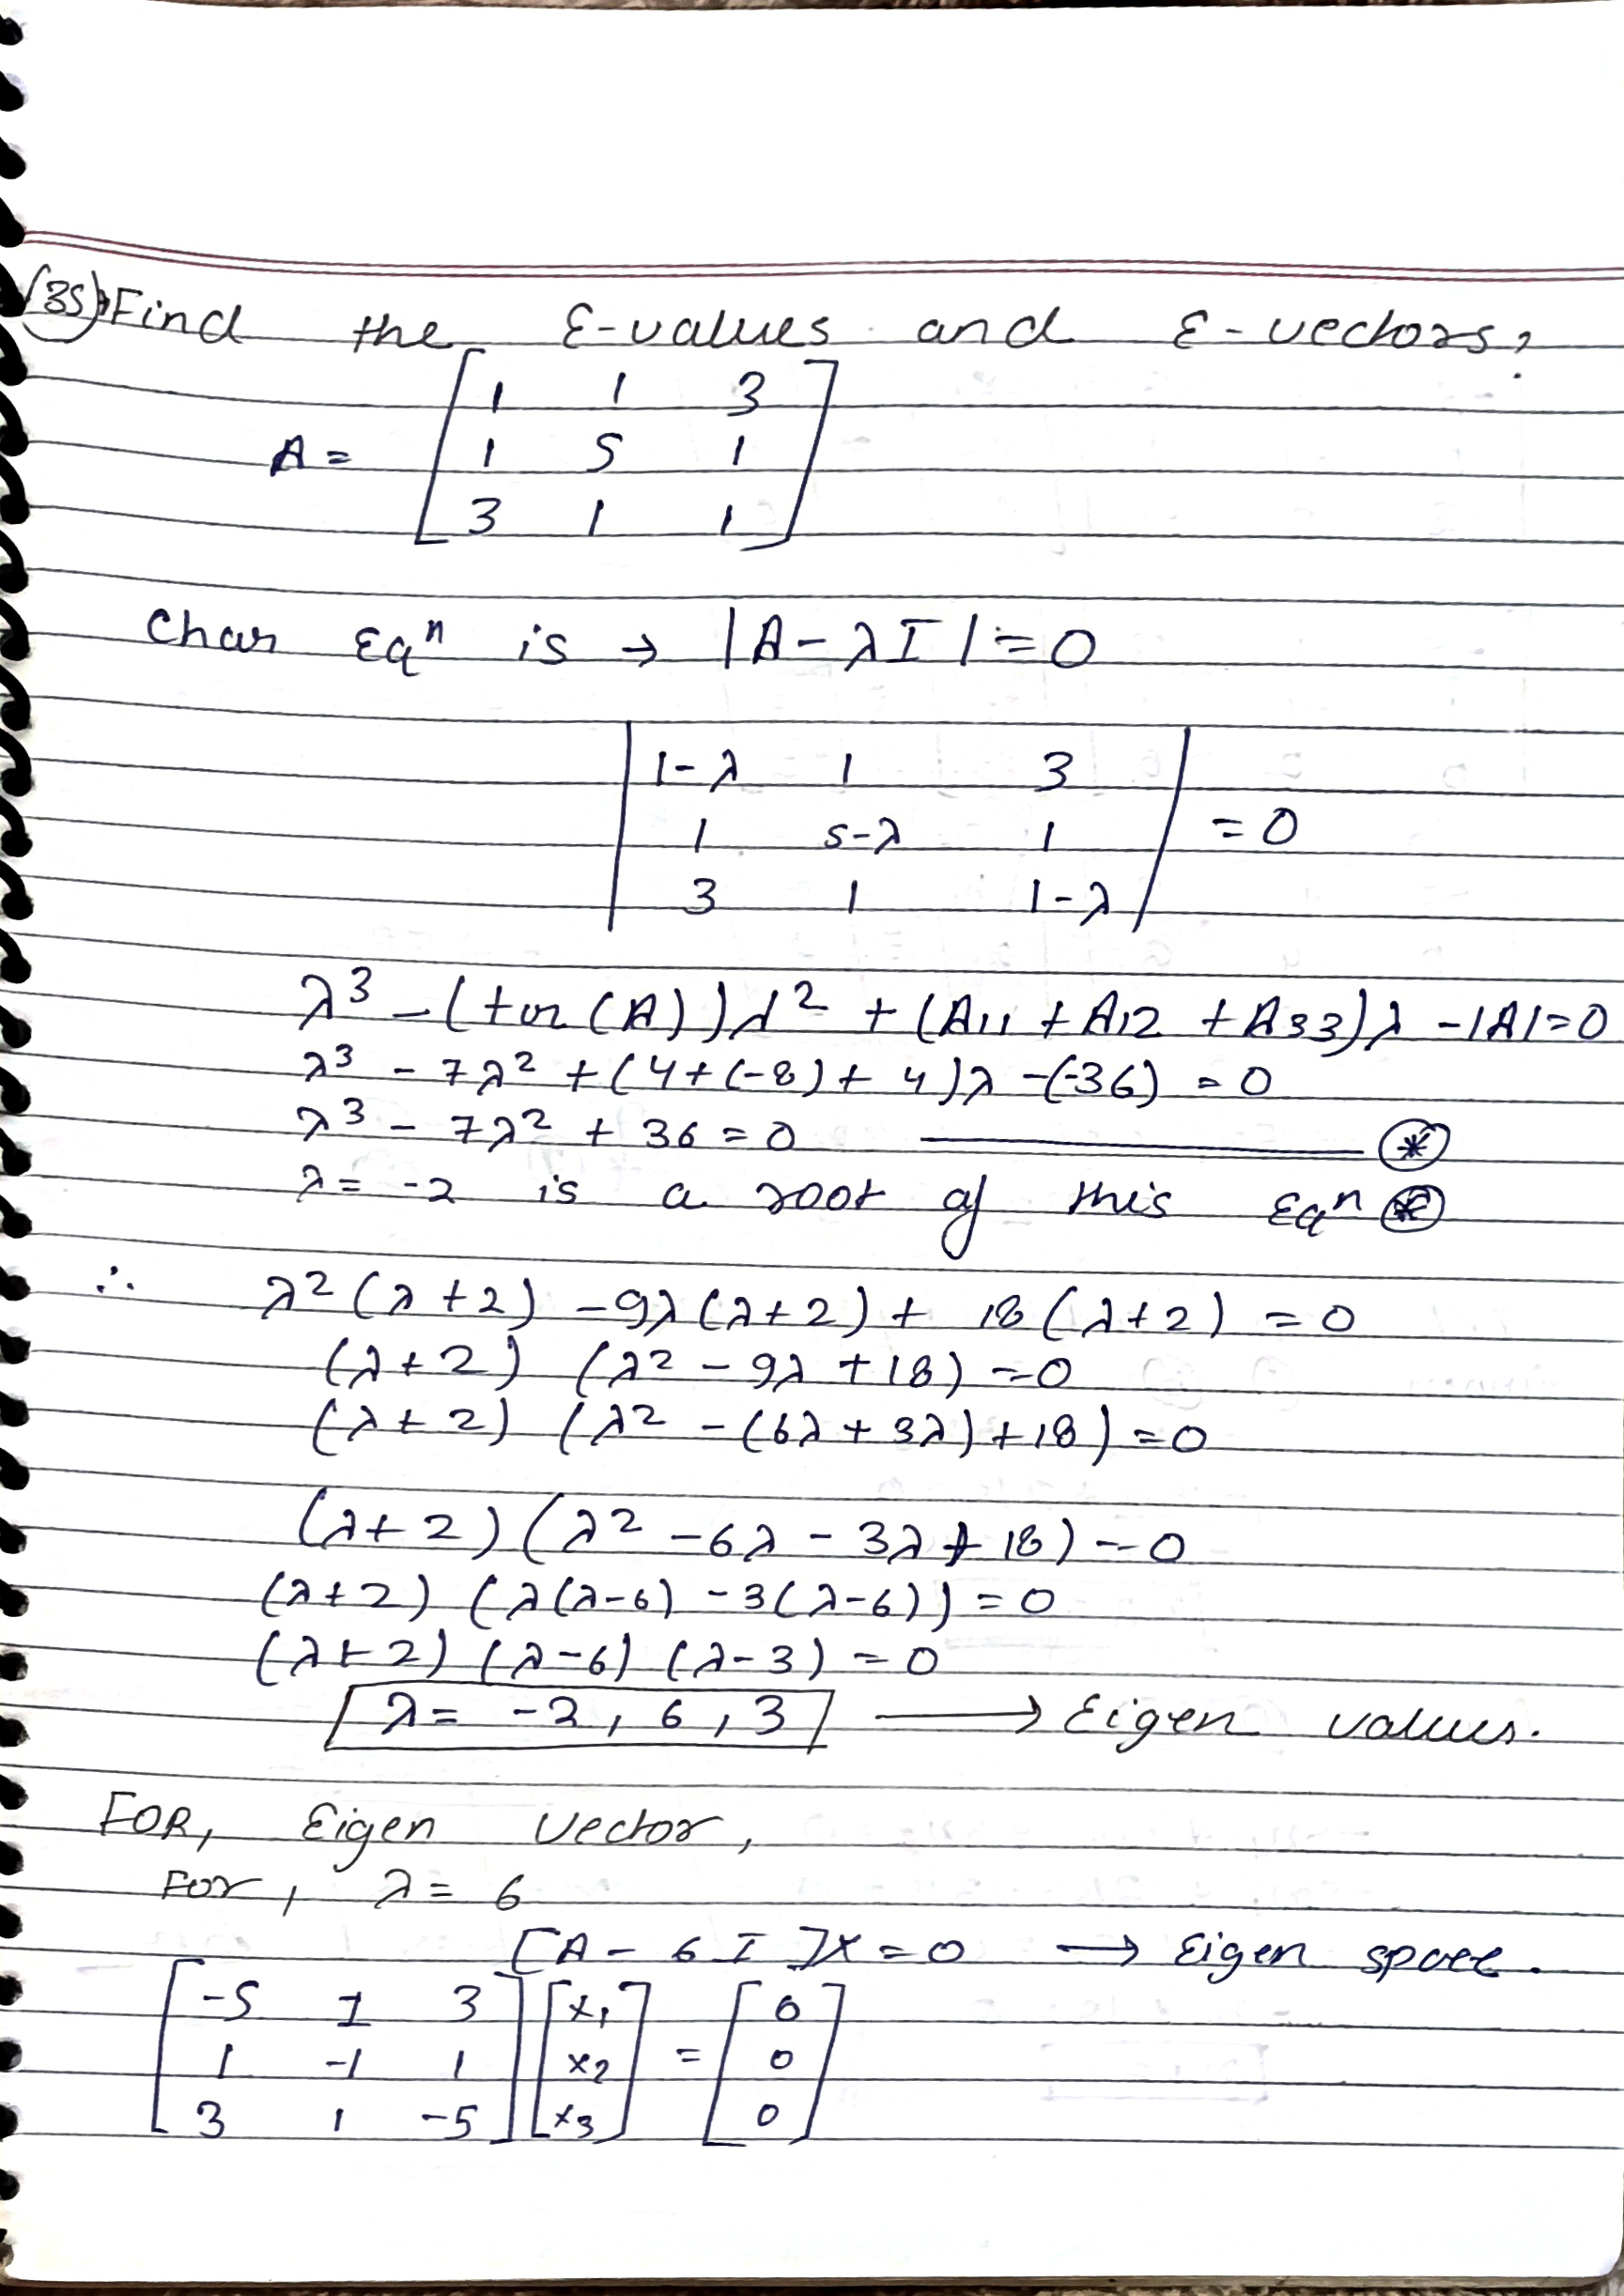 (35) Find the E-values and E-vectors?
A = [ 1 1 3
1 5 1
3 1 1 ]
Char Eqⁿ is → |A - λI| = 0
| 1-λ 1 3 |
| 1 5-λ 1 | = 0
| 3 1 1-λ |
λ³ - (tr (A)) λ² + (A11 + A12 + A33) λ - |A| = 0
λ³ - 7λ² + (4+(-8)+4)λ -(-36) = 0
λ³ - 7λ² + 36 = 0 ——— ⊛
λ = -2 is a root of this Eqⁿ ⊛
∴ λ²(λ+2) - 9λ(λ+2) + 18(λ+2) = 0
(λ+2) (λ² - 9λ + 18) = 0
(λ+2) (λ² - (6λ + 3λ) + 18) = 0
(λ+2) (λ² - 6λ - 3λ + 18) = 0
(λ+2) (λ(λ-6) - 3(λ-6)) = 0
(λ+2) (λ-6) (λ-3) = 0
λ = -2, 6, 3 → Eigen values.
FOR, Eigen vector,
For, λ = 6
[A - 6I]X = 0 → Eigen space.
[ -5 1 3 ] [ x₁ ] [ 0 ]
[ 1 -1 1 ] [ x₂ ] = [ 0 ]
[ 3 1 -5 ] [ x₃ ] [ 0 ]